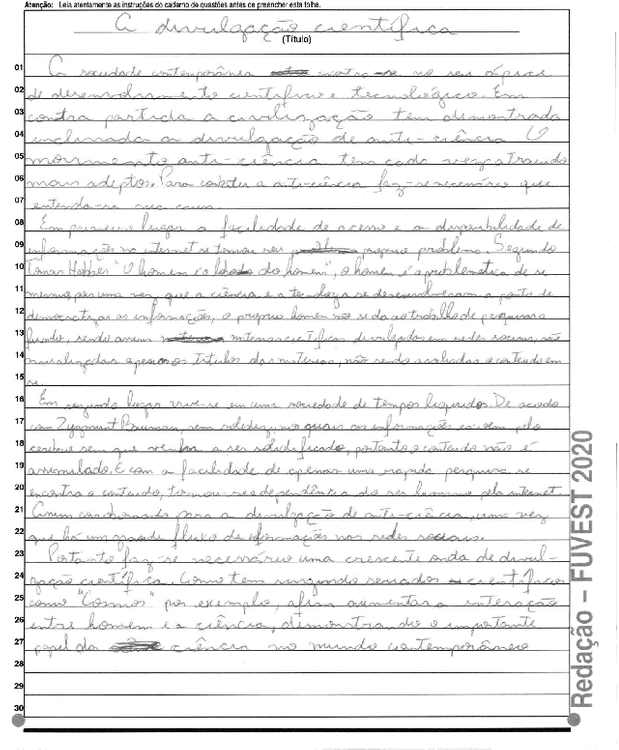 Atenção: Leia atentamente as instruções do caderno de questões antes de preencher esta folha.
A divulgação científica
(Título)
01 A sociedade contemporânea encontra-se no seu ápice
02 de desenvolvimento científico e tecnológico. Em
03 contra partida a civilização tem demonstrado
04 inclinada a divulgação de anti-ciência O
05 movimento anti-ciência tem cada vez atraindo
06 mais adeptos. Para combater a anti-ciência faz-se necessário que
07 entenda-se sua causa.
08 Em primeiro lugar a facilidade de acesso e a disponibilidade de
09 informação na internet se tornou seu proprio problema. Segundo
10 Tomas Hobbes "O homem é o lobo do homem", o homem é a problematica de si
11 mesmo, pois uma vez que a ciência e a tecnologia se desenvolveram a ponto de
12 democratizar as informações, o proprio homem não se da ao trabalho de pesquisar a
13 fundo, sendo assim materias cientificas divulgadas em redes sociais, são
14 apenas o titulos das materias, não sendo avaliado o conteudo em
15 si.
16 Em segundo lugar vive-se em uma sociedade de tempos liquidos. De acordo
17 com Zygmunt Bauman, sem solidez, no quais as informações escoem pelo
18 cerebro sem que venha a ser solidificado, portanto o conteudo não é
19 assimilado. E com a facilidade de apenas uma rapida pesquisa se
20 encontra o conteudo, tornou-se a dependência do ser humano pela internet
21 para a divulgação de anti-ciência, uma vez
22 que há um grande fluxo de informações nas redes sociais.
23 Portanto faz-se necessário uma crescente onda de divul-
24 gação científica. Como tem surgindo seriados cientificos
25 como "Cosmos" por exemplo, afim aumentar a interação
26 entre homem e a ciência, demonstrando o importante
27 papel da ciência no mundo contemporâneo
28
29
30
Redação – FUVEST 2020